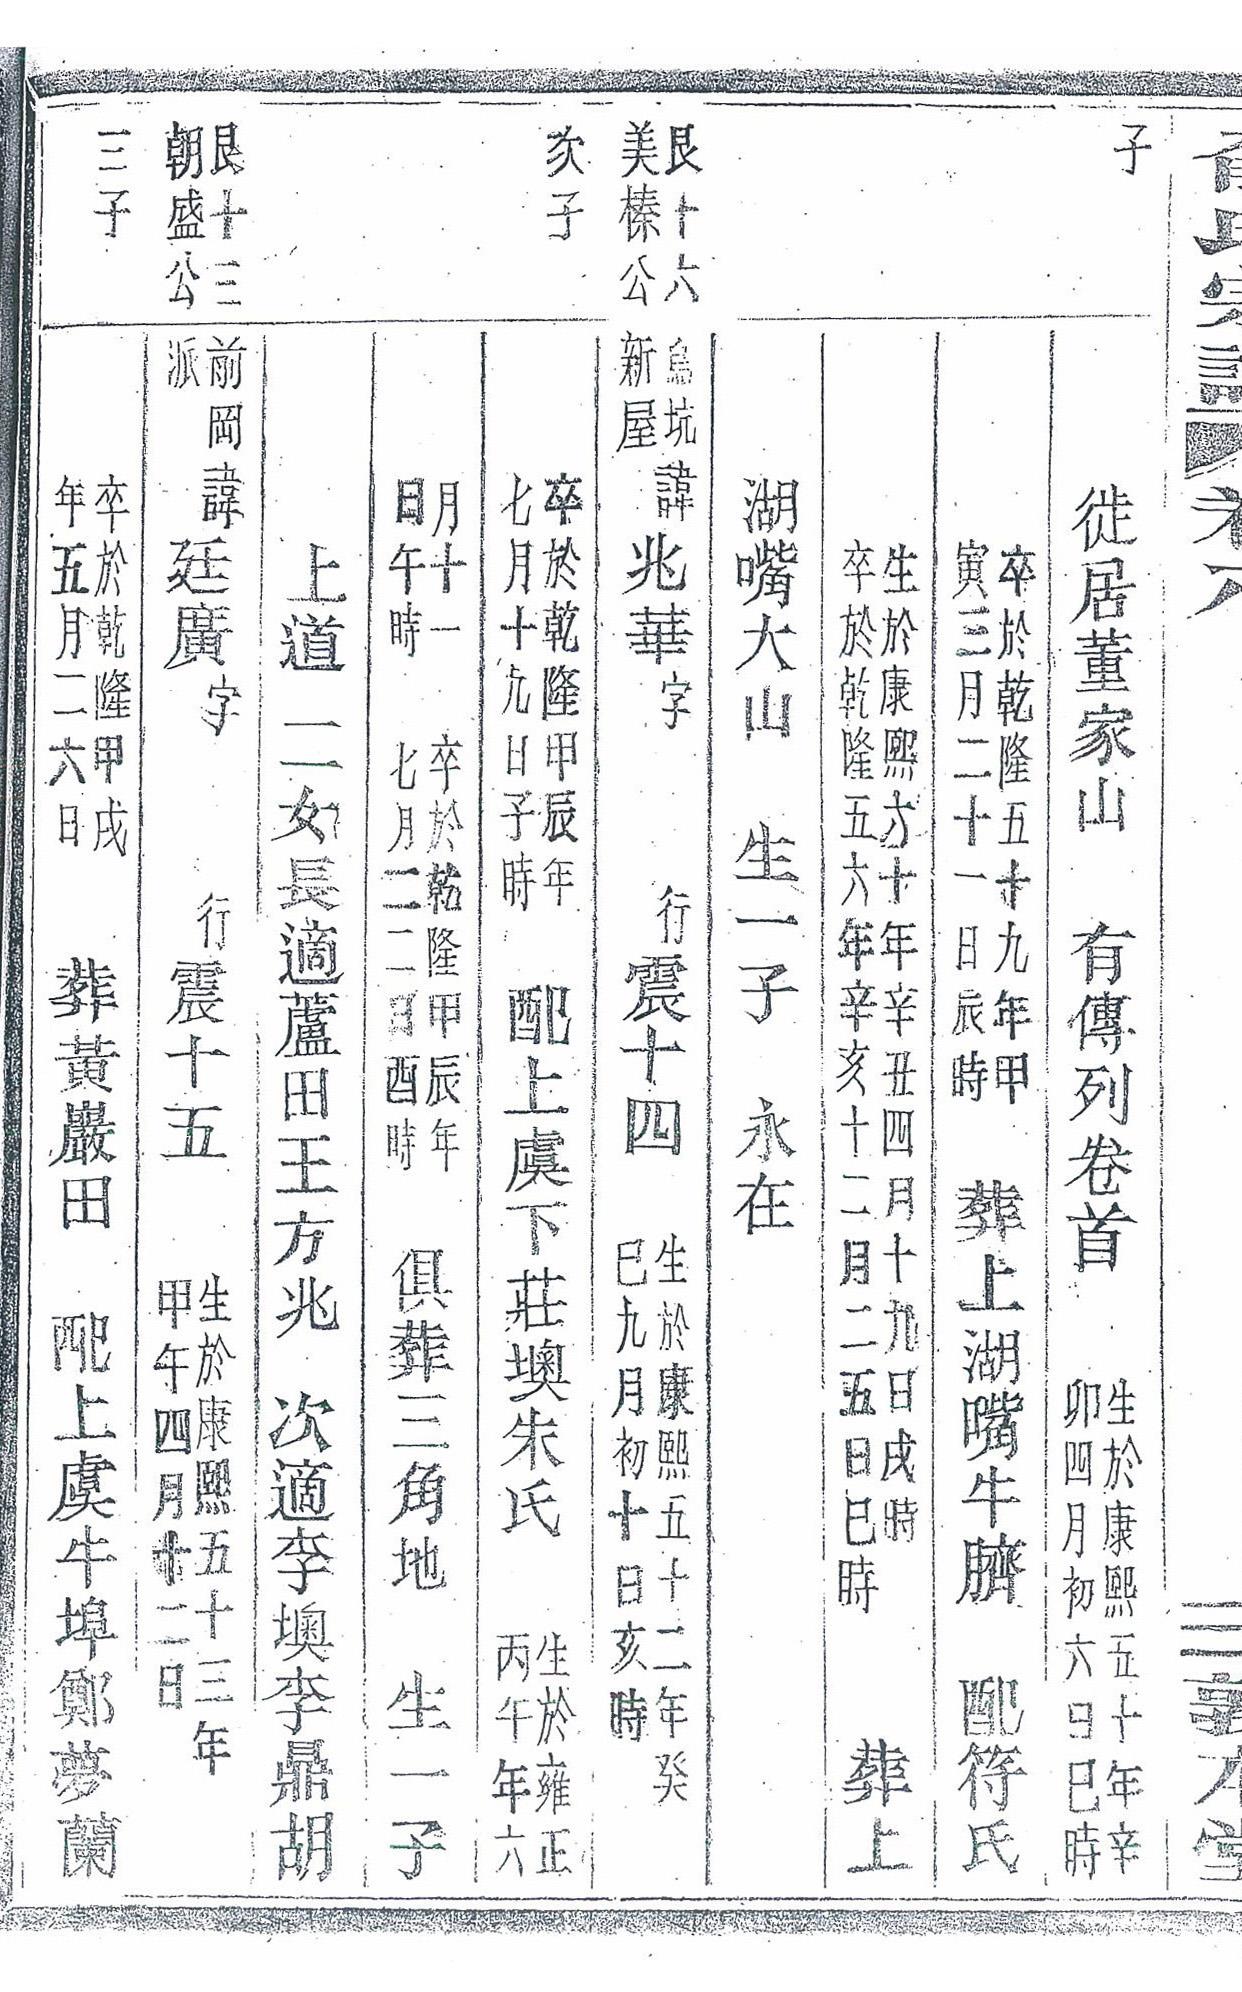 氏宗譜
敦本堂
子
徙居董家山　有傳列卷首　生於康熙五十年辛
卯四月初六日巳時
卒於乾隆五十九年甲
寅三月二十一日辰時　葬上湖嘴牛臍　配符氏
生於康熙六十年辛丑四月十九日戌時
卒於乾隆五六年辛亥十二月二五日巳時　葬上
湖嘴大山　生一子　永在
艮十六
美榛公
烏坑
新屋
諱兆華字　行震十四　生於康熙五十二年癸
巳九月初十日亥時
次子
卒於乾隆甲辰年
七月十九日子時　配上虞下莊墺朱氏　生於雍正
丙午年六
月十一
日午時　卒於乾隆甲辰年
七月二二日酉時　俱葬三角地　生一子
上道　二女長適蘆田王方兆　次適李墺李鼎胡
艮十三
朝盛公
前岡
派
諱廷廣字　行震十五　生於康熙五十三年
甲午四月十二日
三子
卒於乾隆甲戌
年五月二六日　葬黃巖田　配上虞牛埠鄭夢蘭